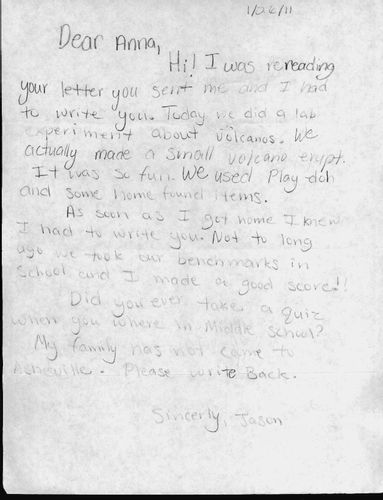 1/26/11
Dear Anna,
Hi! I was rereading
your letter you sent me and I had
to write you. Today we did a lab
experiment about volcanos. We
actually made a small volcano erupt.
It was so fun. We used Play-doh
and some home found items.
As soon as I got home I knew
I had to write you. Not to long
ago we took our benchmarks in
school and I made a good score!!
Did you ever take a quiz
when you where in Middle school?
My family has not came to
Asheville. Please write Back.
Sincerly, Jason